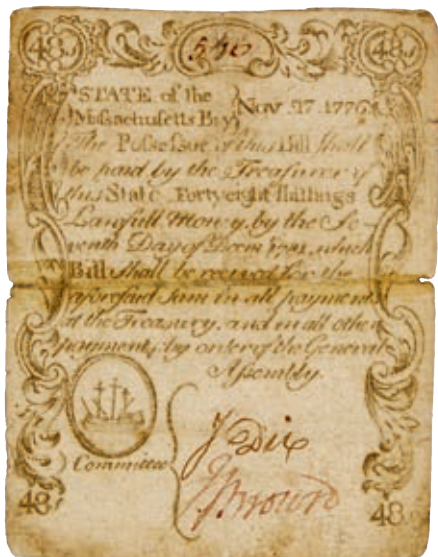 48 48
540
STATE of the
Massachusetts Bay Nov. 17 1776
The Possessor of this Bill shall
be paid by the Treasurer of
this State Forty eight Shillings
Lawfull Money, by the Se-
venth Day of Decm 1781, which
Bill shall be received for the
aforesaid Sum in all payments
at the Treasury, and in all other
payments, by order of the General
Assembly
Committee
J Dix
48 48